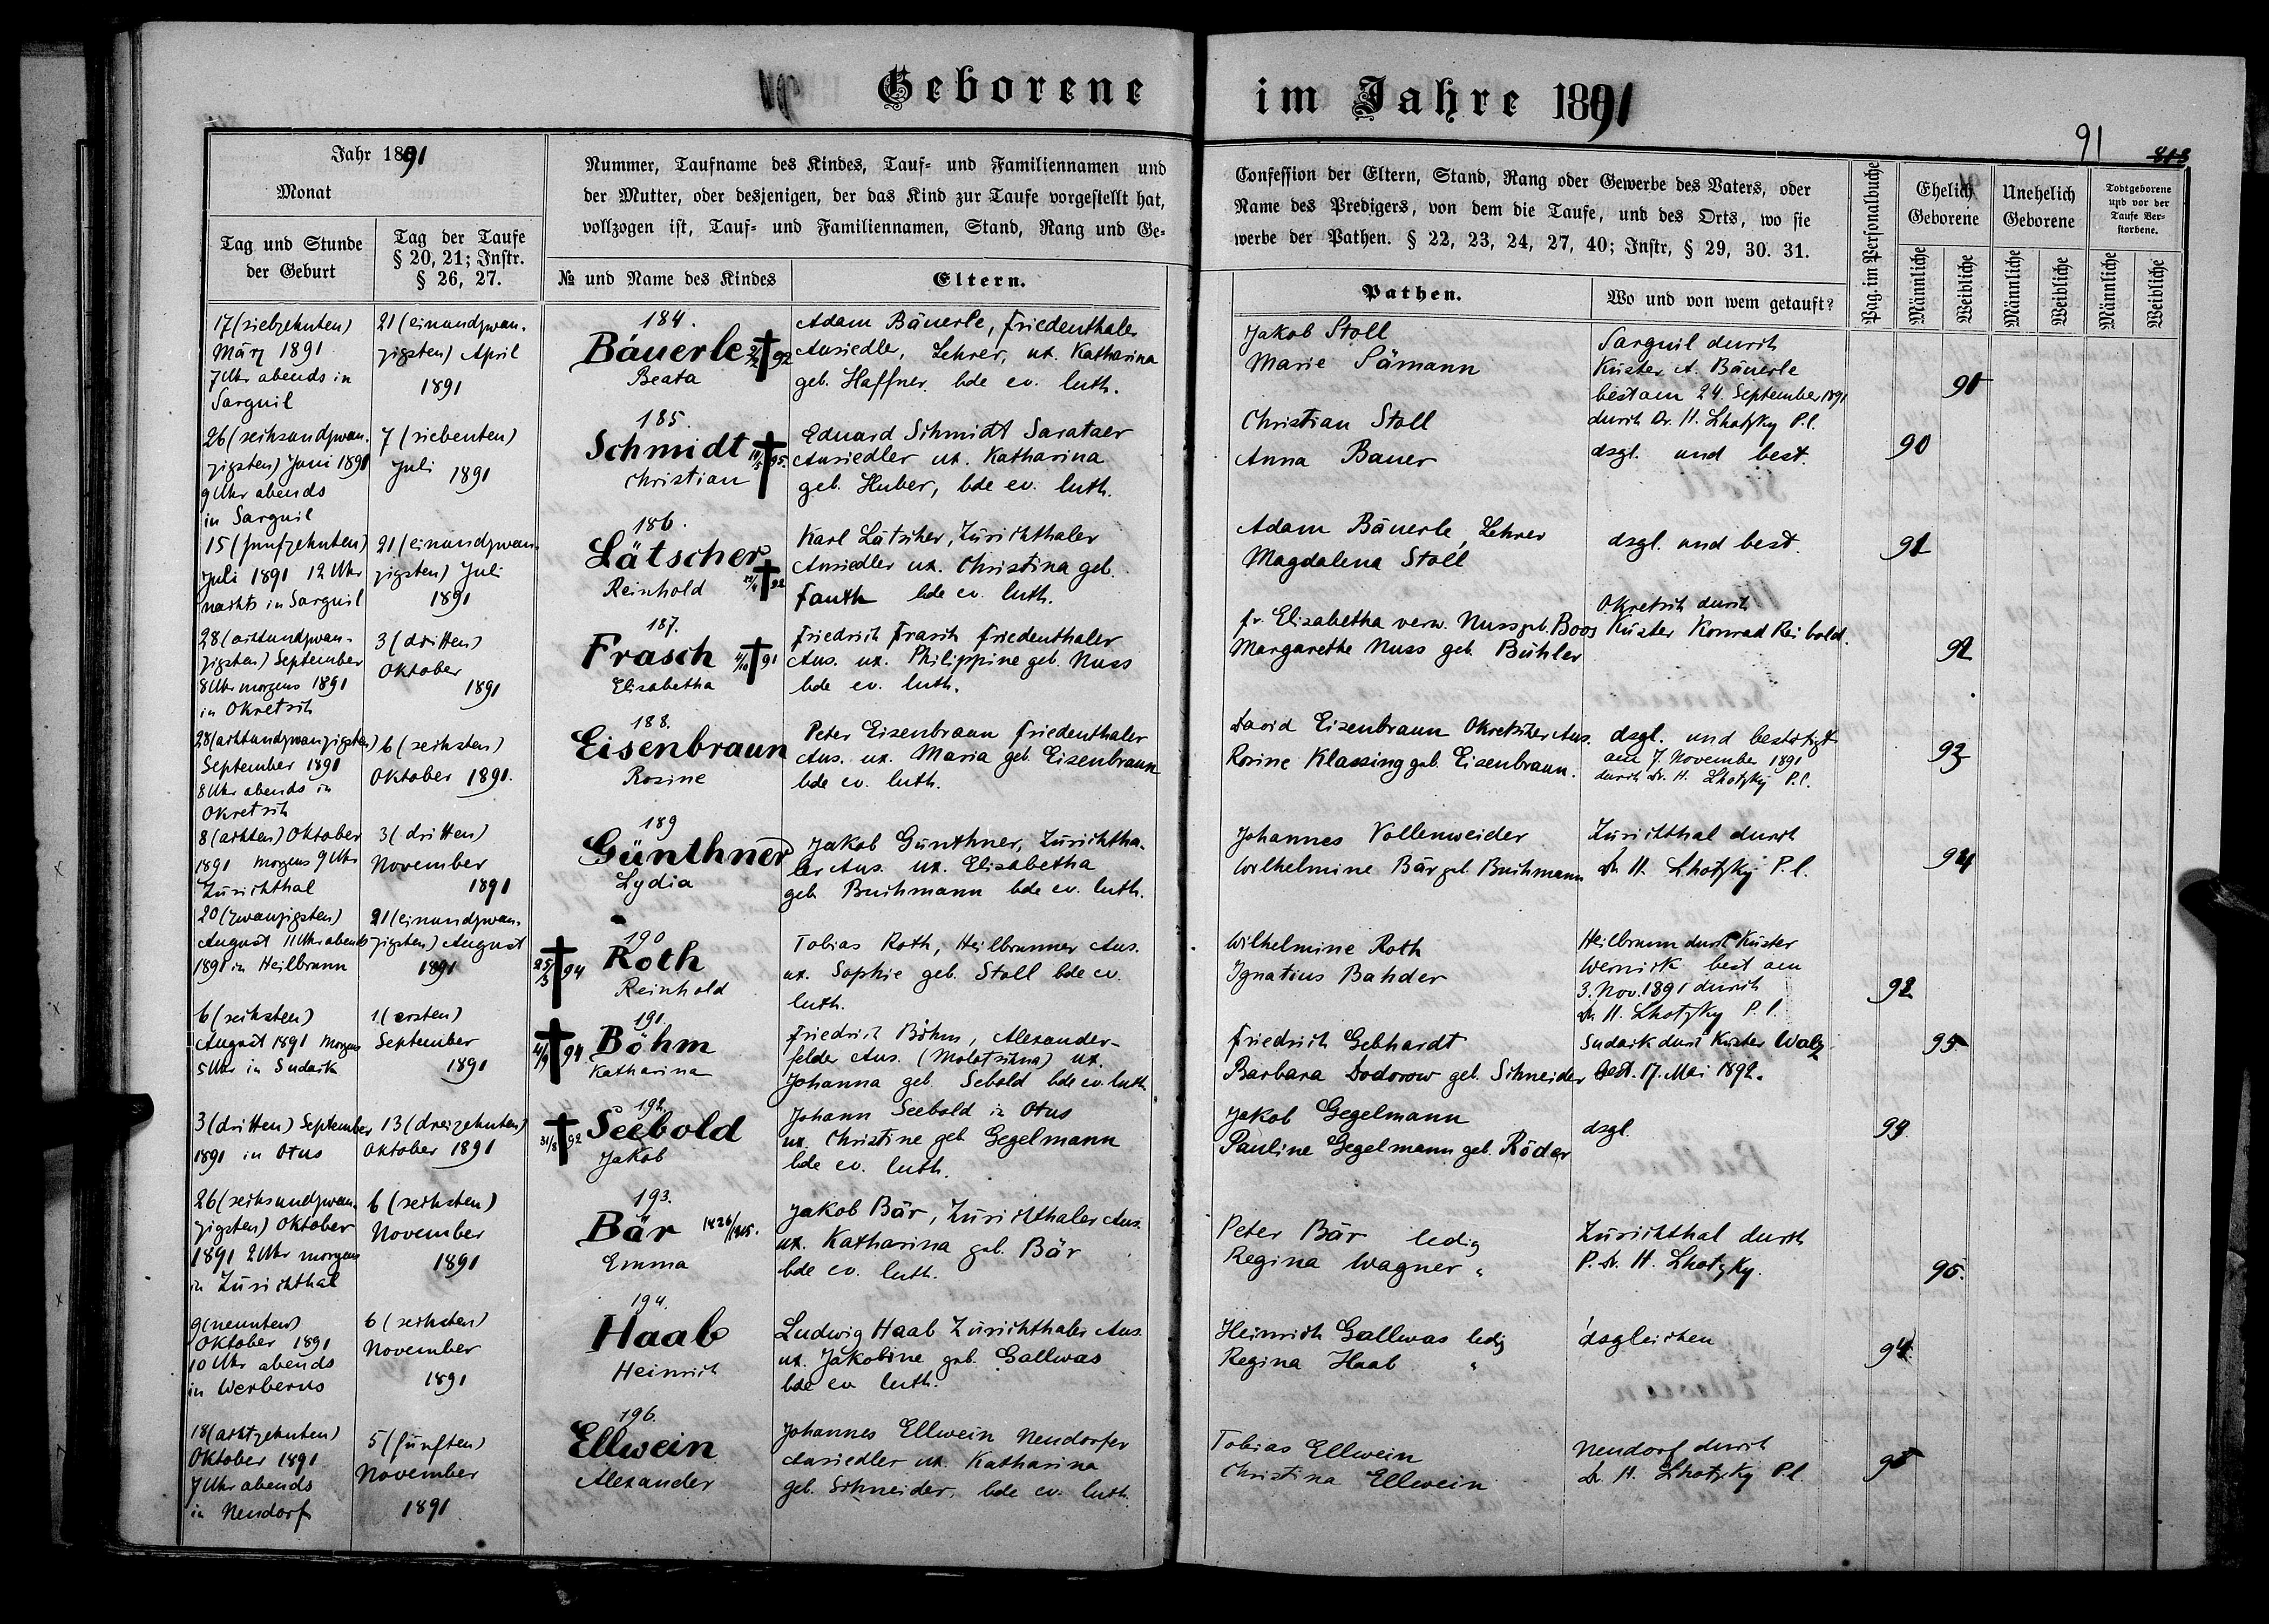 Geborene im Jahre 1891
91
813
Jahr 1891
Monat
Tag und Stunde
der Geburt
Tag der Taufe
§ 20, 21; Instr.
§ 26, 27.
Nummer, Taufname des Kindes, Tauf- und Familiennamen und
der Mutter, oder desjenigen, der das Kind zur Taufe vorgestellt hat,
vollzogen ist, Tauf- und Familiennamen, Stand, Rang und Ge-
№ und Name des Kindes
Eltern.
Confession der Eltern, Stand, Rang oder Gewerbe des Vaters, oder
Name des Predigers, von dem die Taufe, und des Orts, wo sie
werbe der Pathen. § 22, 23, 24, 27, 40; Instr, § 29, 30. 31.
Pathen.
Wo und von wem getauft?
Pag. im Personalbuche
Ehelich
Geborene
Unehelich
Geborene
Todtgeborene
und vor der
Taufe Ver-
storbene.
Männliche
Weibliche
Männliche
Weibliche
Männliche
Weibliche
17 (siebzehnten)
März 1891
7 Uhr abends in
Sarguil
21 (einundzwan-
zigsten) April
1891
184.
Bäuerle † 92
Beata
Adam Bäuerle, Friedenthaler
Ansiedler, Lehrer, ux. Katharina
geb. Haffner bde ev. luth.
Jakob Stoll
Marie Sämann
Sarguil durch
Küster A. Bäuerle
best am 24. September 1891
durch Dr. H. Lhotzky P.l.
91
26 (sechsundzwan-
zigsten) Juni 1891
9 Uhr abends
in Sarguil
7 (siebenten)
Juli 1891
185.
Schmidt † 95.
Christian
Eduard Schmidt Sarataer
Ansiedler ux. Katharina
geb. Huber, bde ev. luth.
Christian Stoll
Anna Bauer
dsgl. und best.
90
15 (funfzehnten)
Juli 1891 12 Uhr
nachts in Sarguil
21 (einundzwan-
zigsten) Juli
1891
186.
Lätscher
Reinhold 22/4 † 92
Karl Lätscher, Zürichthaler
Ansiedler ux. Christina geb.
Fauth bde ev. luth.
Adam Bäuerle, Lehrer
Magdalena Stoll
dsgl. und best.
91
28 (achtundzwan-
zigsten) September
8 Uhr morgens 1891
in Okretsch
3 (dritten)
Oktober
1891
187.
Frasch 4/10 † 91
Elisabetha
Friedrich Frasch Friedenthaler
Ans. ux. Philippine geb. Nuss
bde ev. luth.
Fr. Elisabetha verw. Nuss geb. Boos
Margarethe Nuss geb. Bühler
Okretsch durch
Küster Konrad Reibold.
92
28 (achtundzwanzigsten)
September 1891
8 Uhr abends in
Okretsch
6 (sechsten)
Oktober 1891.
188.
Eisenbraun
Rosine
Peter Eisenbraun Friedenthaler
Ans. ux. Maria geb. Eisenbraun
bde ev. luth.
David Eisenbraun Okretscher Ans.
Rosine Klassing geb. Eisenbraun.
dsgl. und bestätigt
am 7. November 1891
durch Dr. H. Lhotzky P.l.
93
8 (achten) Oktober
1891 morgens 9 Uhr
Zürichthal
3 (dritten)
November
1891
189
Günthner
Lydia
Jakob Günthner, Zürichtha-
ler Ans. ux. Elisabetha
geb. Buchmann bde ev. luth.
Johannes Vollenweider
Wilhelmine Bär geb. Buchmann
Zürichthal durch
Dr. H. Lhotzky P.l.
94
20 (zwanzigsten)
August 11 Uhr abends
1891 in Heilbrunn
21 (einundzwan-
zigsten) August
1891
25/3 † 94
190
Roth
Reinhold
Tobias Roth, Heilbrunner Ans.
ux. Sophie geb. Stoll bde ev.
luth.
Wilhelmine Roth
Ignatius Bahder
Heilbrunn durch Küster
Wernick best am
3. Nov. 1891 durch
Dr. H. Lhotzky P.l.
92
6 (sechsten)
August 1891 Morgens
5 Uhr in Sudack
1 (ersten)
September
1891
† 94
191.
Böhm
Katharina
Friedrich Böhm, Alexander-
felder Ans. (Molotschna) ux.
Johanna geb. Sebold bde ev. luth.
Friedrich Gebhardt
Barbara Dodorow geb. Schneider
Sudack durch Küster Walz
best. 17. Mai 1892.
95
3 (dritten) September
1891 in Otus
13 (dreizehnten)
Oktober 1891
31/8 † 92
192.
Seebold
Jakob
Johann Seebold in Otus
ux. Christine geb. Gegelmann
bde ev. luth.
Jakob Gegelmann
Pauline Gegelmann geb. Röder
dsgl.
93
26 (sechsundzwan-
zigsten) Oktober
1891 2 Uhr morgens
in Zürichthal
6 (sechsten)
November
1891
193.
Bär
Emma
Jakob Bär, Zürichthaler Ans.
ux. Katharina geb. Bär
bde ev. luth.
Peter Bär ledig
Regina Wagner "
Zürichthal durch
P. Dr. H. Lhotzky.
96.
9 (neunten)
Oktober 1891
10 Uhr abends
in Werberus
6 (sechsten)
November
1891
194.
Haab
Heinrich
Ludwig Haab Zürichthaler Ans.
ux. Jakobine geb. Gallwas
bde ev luth.
Heinrich Gallwas ledig
Regina Haab "
dsgleichen
94
18 (achtzehnten)
Oktober 1891
7 Uhr abends
in Neudorf
5 (fünften)
November
1891
196.
Ellwein
Alexander
Johannes Ellwein Neudorfer
Ansiedler ux. Katharina
geb. Schneider, bde ev. luth.
Tobias Ellwein
Christina Ellwein
Neudorf durch
Dr. H. Lhotzky P.l.
95